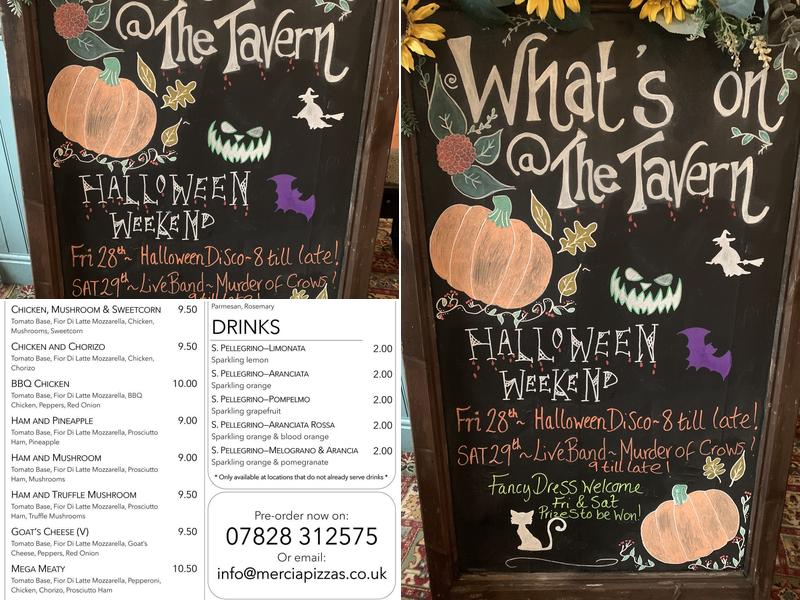 @The Tavern
HALLOWEEN
WEEKEND
Fri 28th~ Halloween Disco~8 till late!
SAT 29th~ Live Band~ Murder of Crows!
9 till late!
CHICKEN, MUSHROOM & SWEETCORN 9.50
Tomato Base, Fior Di Latte Mozzarella, Chicken,
Mushrooms, Sweetcorn
CHICKEN AND CHORIZO 9.50
Tomato Base, Fior Di Latte Mozzarella, Chicken,
Chorizo
BBQ CHICKEN 10.00
Tomato Base, Fior Di Latte Mozzarella, BBQ
Chicken, Peppers, Red Onion
HAM AND PINEAPPLE 9.00
Tomato Base, Fior Di Latte Mozzarella, Prosciutto
Ham, Pineapple
HAM AND MUSHROOM 9.00
Tomato Base, Fior Di Latte Mozzarella, Prosciutto
Ham, Mushrooms
HAM AND TRUFFLE MUSHROOM 9.50
Tomato Base, Fior Di Latte Mozzarella, Prosciutto
Ham, Truffle Mushrooms
GOAT'S CHEESE (V) 9.50
Tomato Base, Fior Di Latte Mozzarella, Goat's
Cheese, Peppers, Red Onion
MEGA MEATY 10.50
Tomato Base, Fior Di Latte Mozzarella, Pepperoni,
Chicken, Chorizo, Prosciutto Ham
Parmesan, Rosemary
DRINKS
S. PELLEGRINO–LIMONATA 2.00
Sparkling lemon
S. PELLEGRINO–ARANCIATA 2.00
Sparkling orange
S. PELLEGRINO–POMPELMO 2.00
Sparkling grapefruit
S. PELLEGRINO–ARANCIATA ROSSA 2.00
Sparkling orange & blood orange
S. PELLEGRINO–MELOGRANO & ARANCIA 2.00
Sparkling orange & pomegranate
* Only available at locations that do not already serve drinks *
Pre-order now on:
07828 312575
Or email:
info@merciapizzas.co.uk
What's on
@The Tavern
HALLOWEEN
WEEKEND
Fri 28th~ Halloween Disco~8 till late!
SAT 29th~ Live Band~ Murder of Crows!
9 till late!
Fancy Dress Welcome
Fri & Sat
Prizes to be Won!